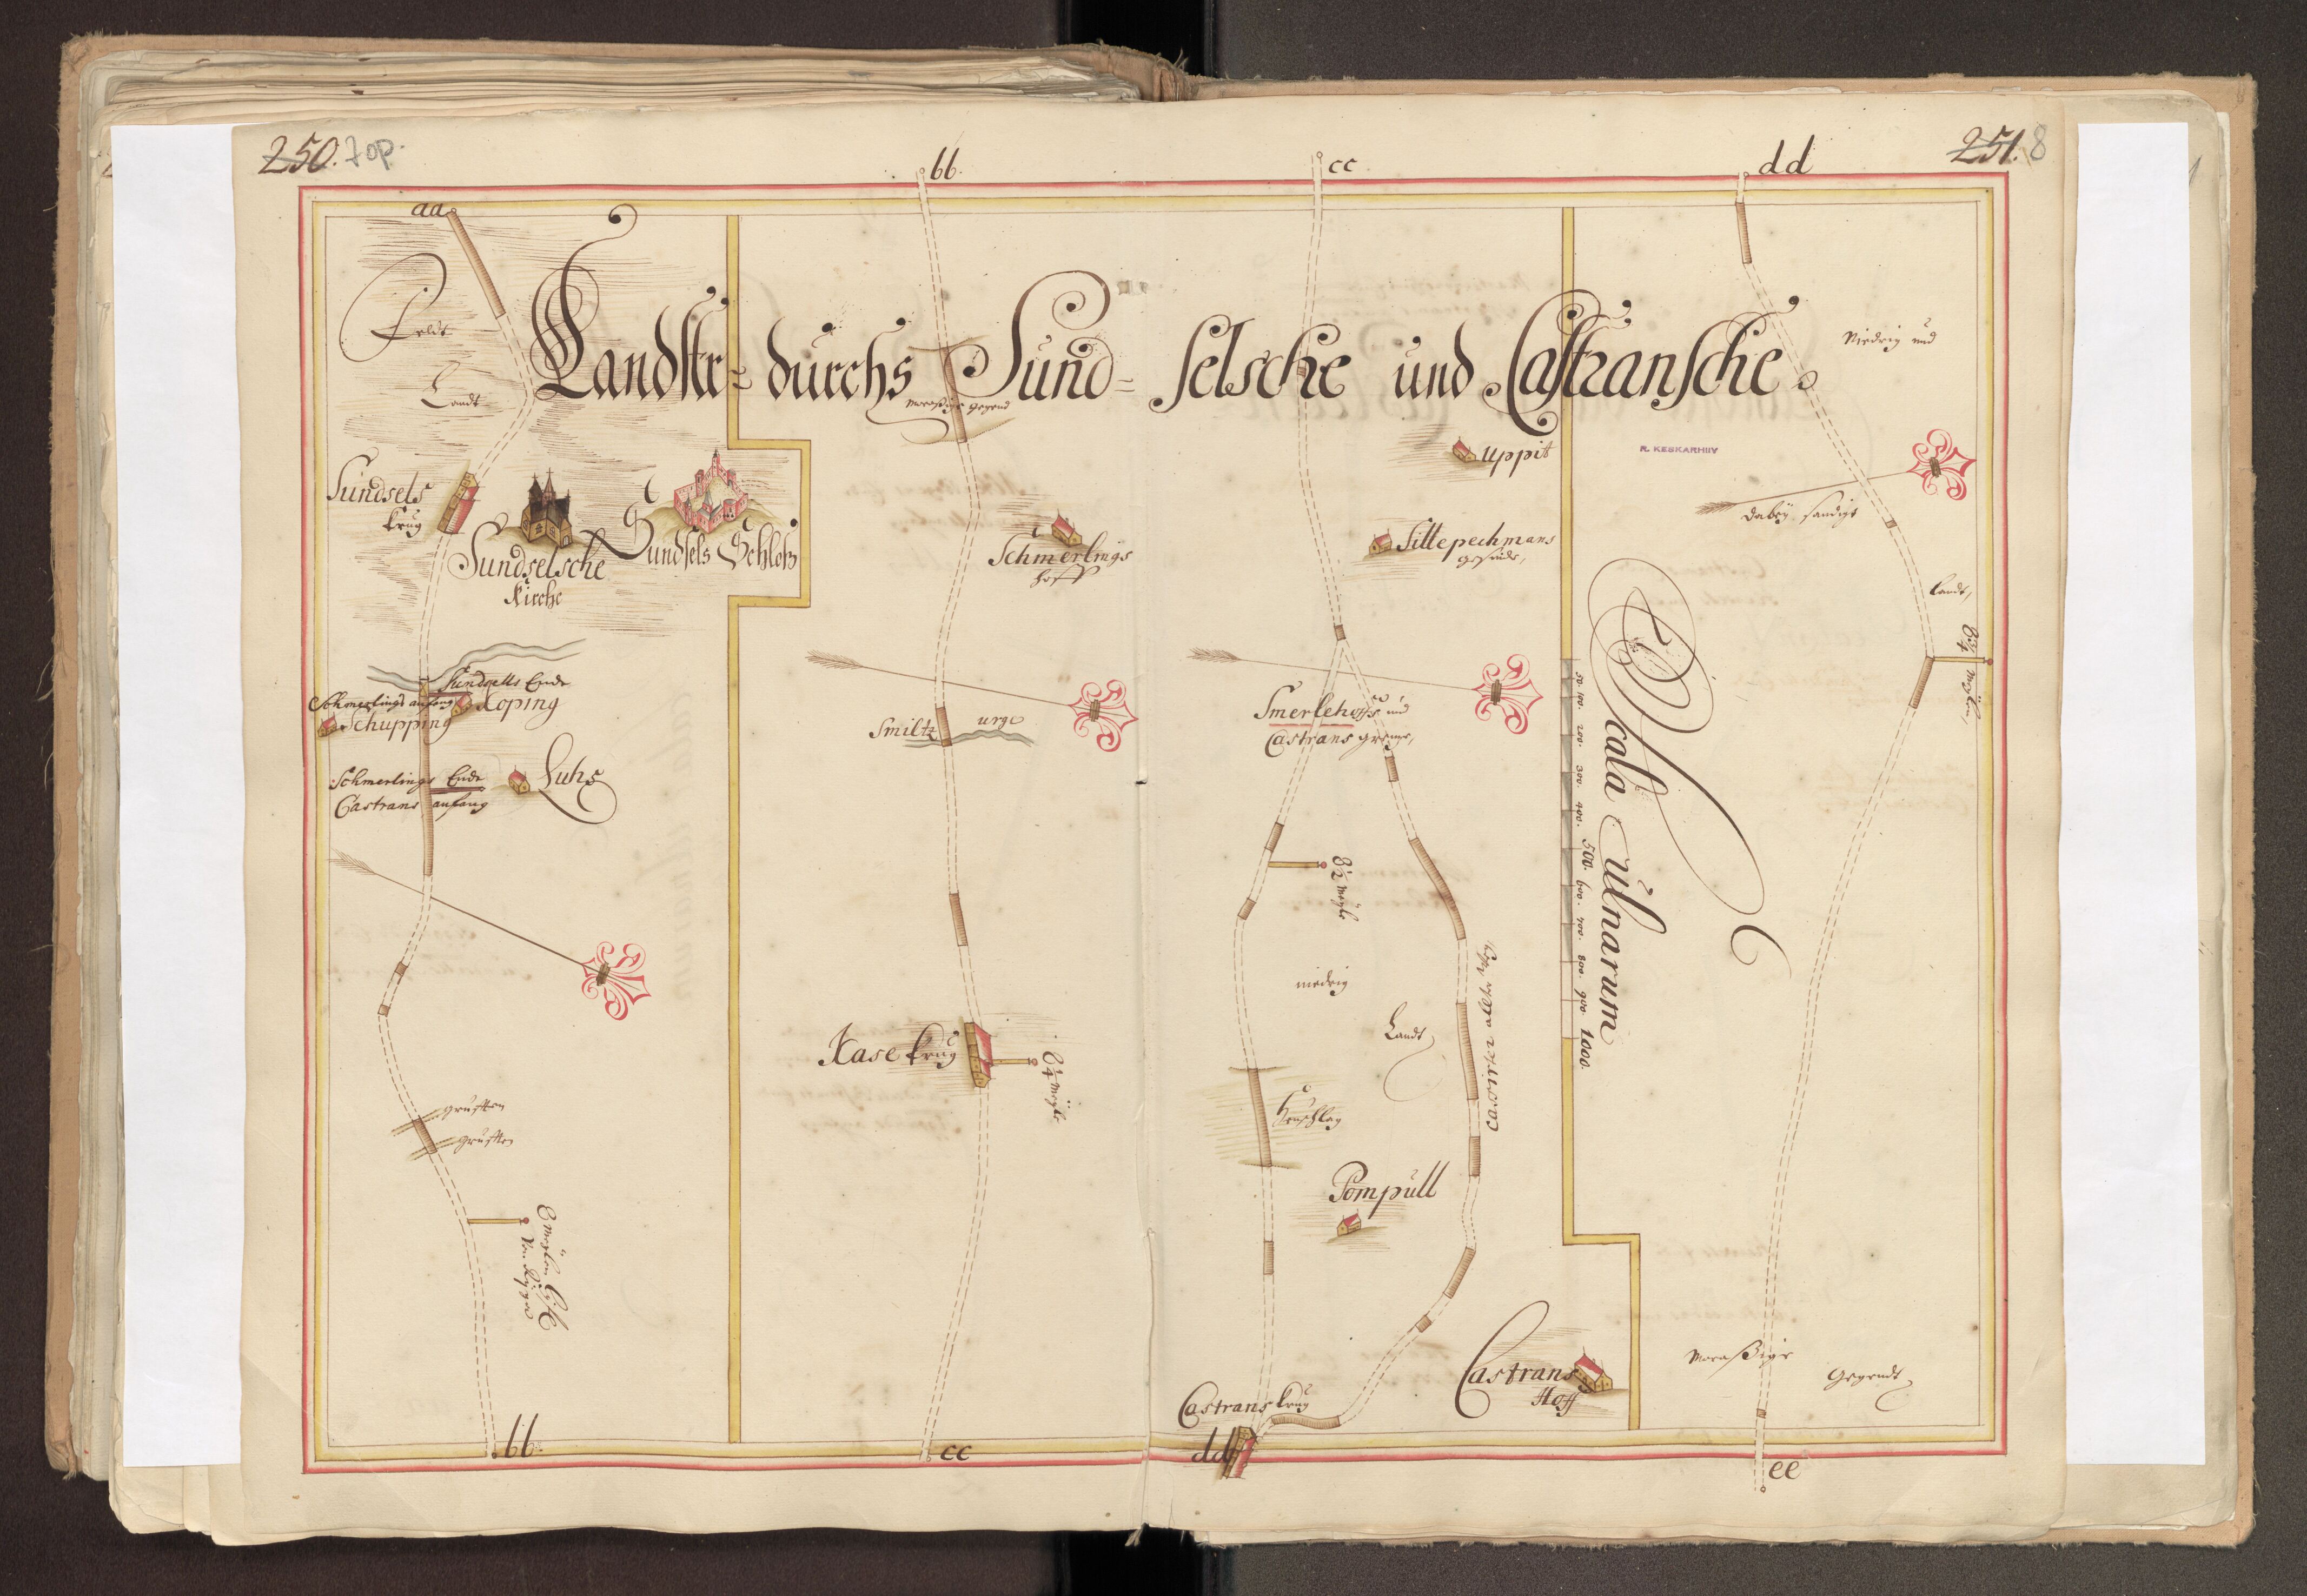 250. 7 op.
251. 8
bb.
cc
dd
aa
Landstr= durchs Sund= selsche und Castransche
Feldt
Landt
Sundsels
krug
Sundselsche
Kirche
Sundsels Schloß
Sundsells Ende
Schmerlings anfang
Koping
Schupping
Schmerlings Ende
Castrans anfang
Luhs
grufften
grufften
8 meylen
Von Riga
.bb.
Moraßige gegend
Schmerlings
hoff
Smiltz urge
Kase krug
8¼ meyle
cc
Uppit
Sittepechmans
gesinde,
Smerlehoffs und
Castrans grentze,
8½ meyle
niedrig
Landt
Cassirter alter Weg,
Heuschlag
Pompull
Castrans
Hoff
Castrans krug
dd
Niedrig und
R. KESKARHIIV
dabey sandigt
Landt,
8¾ meylen,
Scala Ulnarum
50. 100. 200. 300. 400. 500. 600. 700. 800. 900. 1000.
Moraßige
Gegendt
ee